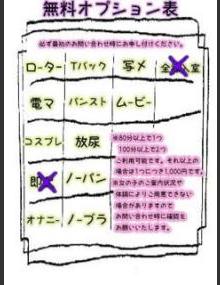 無料オプション表
必ず最初のお問い合わせ時にお申し付けください。
ローター Tバック 写メ 全 室
電マ パンスト ムービー
コスプレ 放尿
即 ノーパン
オナニー ノーブラ
※80分以上で1つ
100分以上で2つ
ご利用可能です。それ以上の
場合は1つにつき1,000円です。
※女の子のご案内状況や
体調によりご用意できない
場合がありますので
お問い合わせ時に確認を
お願いいたします。